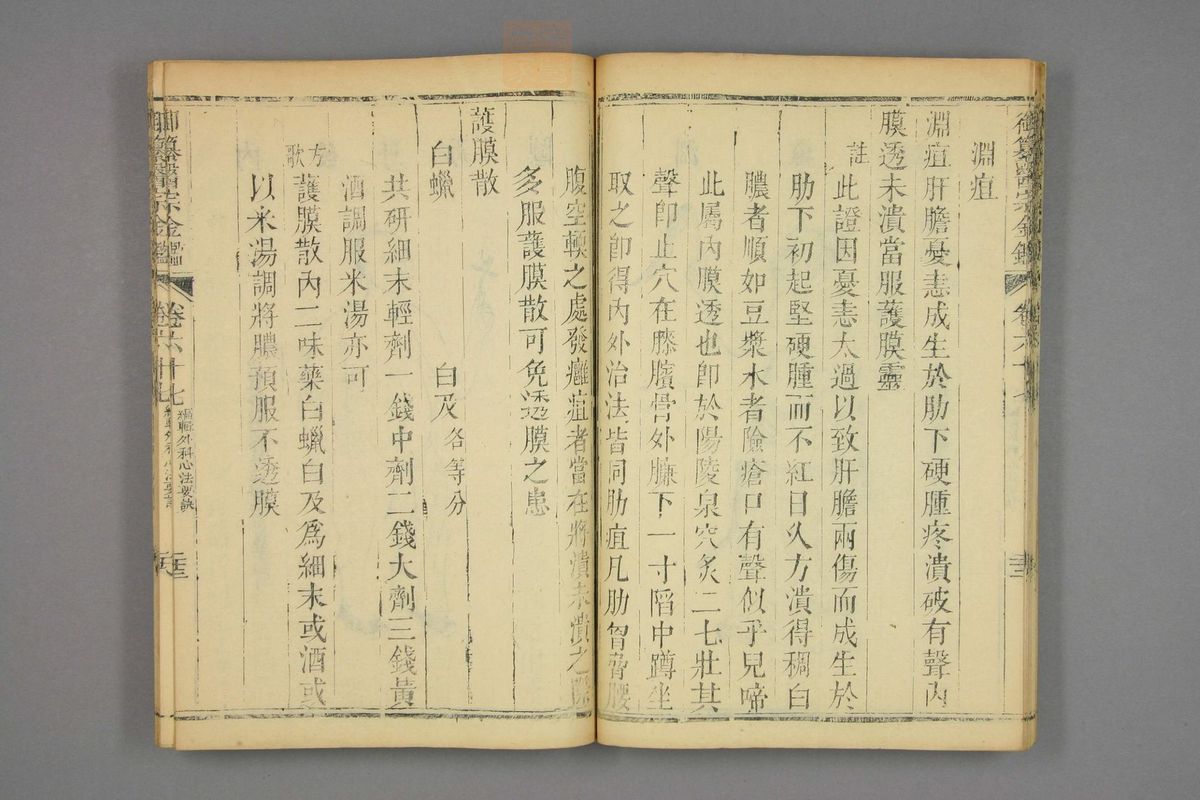 御纂醫宗金鑑
卷六十七
淵疽
淵疽肝膽憂恚成生於肋下硬腫疼潰破有聲內
膜透未潰當服護膜靈
註
此證因憂恚太過以致肝膽兩傷而成生於
肋下初起堅硬腫而不紅日久方潰得稠白
膿者順如豆漿水者險瘡口有聲似乎兒啼
此屬內膜透也卽於陽陵泉穴灸二七壯其
聲卽止穴在膝臏骨外臁下一寸陷中蹲坐
取之卽得內外治法皆同肋疽凡肋胷脅腰
腹空軟之處發癰疽者當在將潰未潰之際
多服護膜散可免透膜之患
護膜散
白蠟 白及各等分
共研細末輕劑一錢中劑二錢大劑三錢黃
酒調服米湯亦可
方歌
護膜散內二味藥白蠟白及爲細末或酒或
以米湯調將膿預服不透膜
御纂醫宗金鑑
卷六十七
編輯外科心法要訣